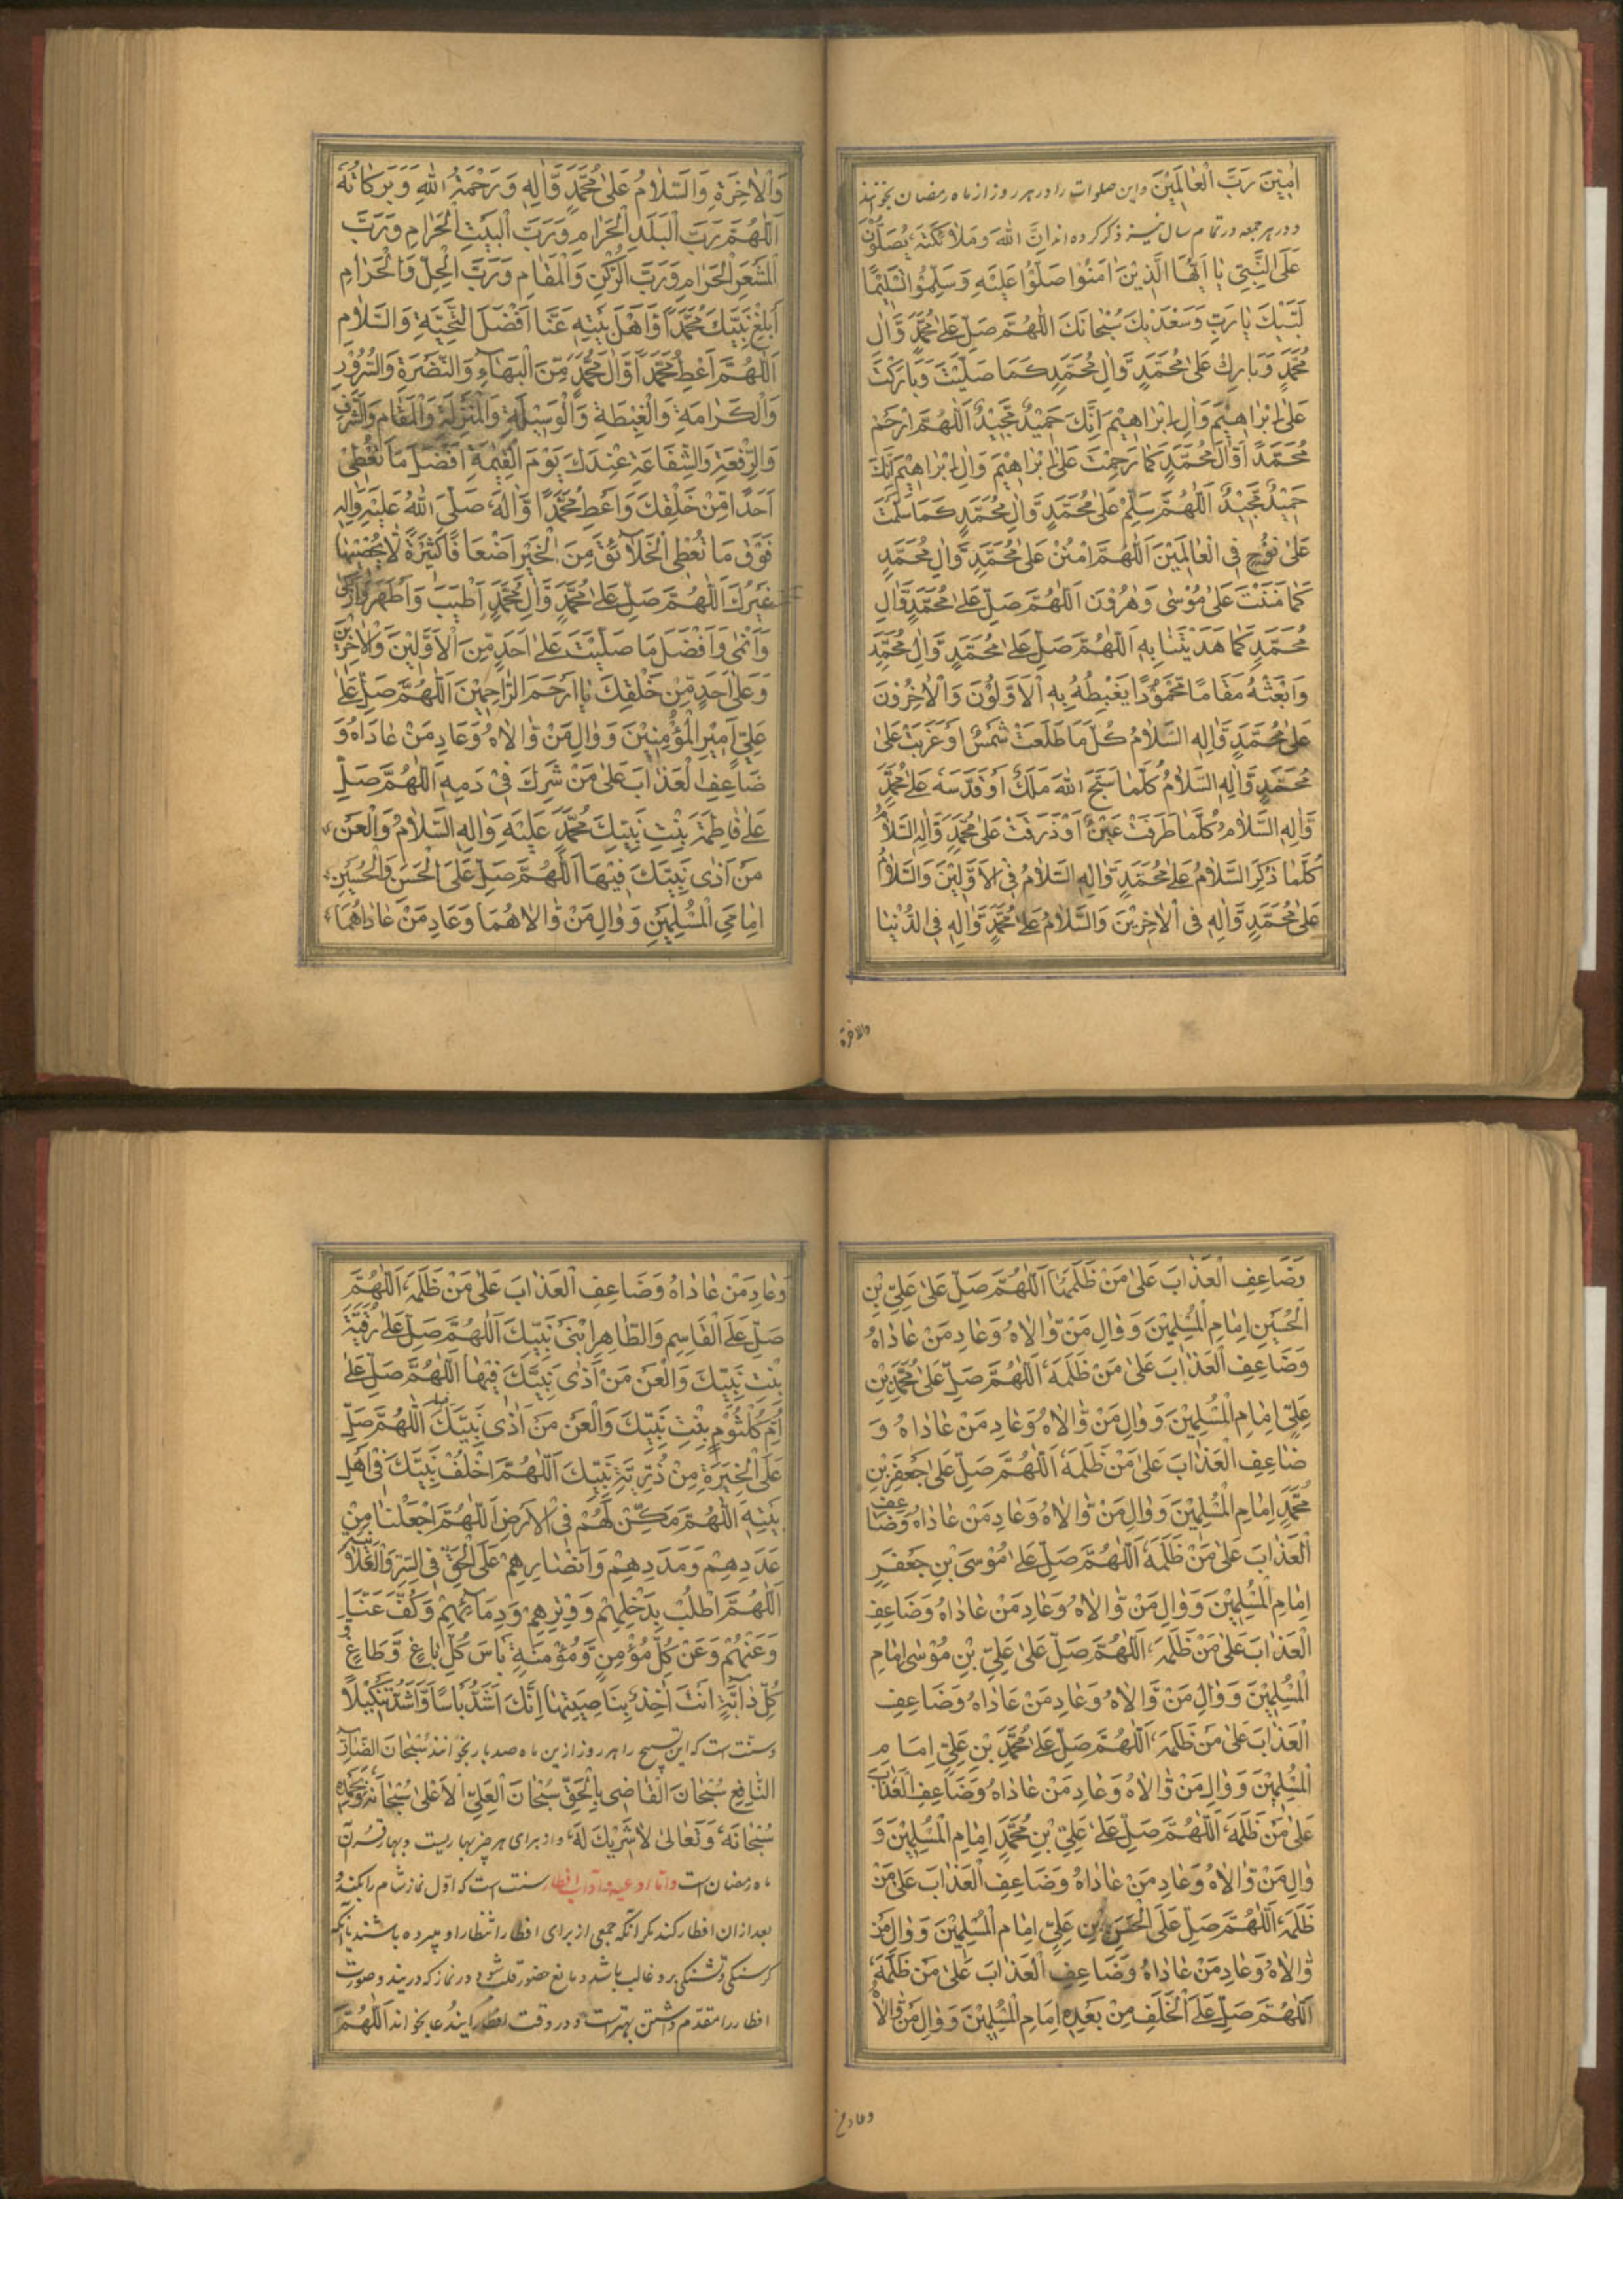 اٰمِيْنَ رَبَّ الْعَالَمِيْنَ واین صلوات را در هر روز از ماه رمضان بخوانند
و در هر جمعه و در تمام سال نیز ذکر کرده اند اِنَّ اللهَ وَمَلاٰئِكَتَهُ يُصَلُّوْنَ
عَلَى النَّبِيِّ يٰا اَيُّهَا الَّذِيْنَ اٰمَنُوْا صَلُّوْا عَلَيْهِ وَسَلِّمُوْا تَسْلِيْمًا
لَبَّيْكَ يٰا رَبِّ وَسَعْدَيْكَ سُبْحٰانَكَ اَللّٰهُمَّ صَلِّ عَلىٰ مُحَمَّدٍ وَّاٰلِ
مُحَمَّدٍ وَبَارِكْ عَلىٰ مُحَمَّدٍ وَّاٰلِ مُحَمَّدٍ كَمَا صَلَّيْتَ وَبَارَكْتَ
عَلىٰ اِبْرٰاهِيْمَ وَاٰلِ اِبْرٰاهِيْمَ اِنَّكَ حَمِيْدٌ مَّجِيْدٌ اَللّٰهُمَّ ارْحَمْ
مُحَمَّدًا وَّاٰلَ مُحَمَّدٍ كَمَا رَحِمْتَ عَلىٰ اِبْرٰاهِيْمَ وَاٰلِ اِبْرٰاهِيْمَ اِنَّكَ
حَمِيْدٌ مَّجِيْدٌ اَللّٰهُمَّ سَلِّمْ عَلىٰ مُحَمَّدٍ وَّاٰلِ مُحَمَّدٍ كَمَا سَلَّمْتَ
عَلىٰ نُوْحٍ فِى الْعٰالَمِيْنَ اَللّٰهُمَّ امْنُنْ عَلىٰ مُحَمَّدٍ وَّاٰلِ مُحَمَّدٍ
كَمَا مَنَنْتَ عَلىٰ مُوْسٰى وَهٰرُوْنَ اَللّٰهُمَّ صَلِّ عَلىٰ مُحَمَّدٍ وَّاٰلِ
مُحَمَّدٍ كَمَا هَدَيْتَنَا بِهِ اَللّٰهُمَّ صَلِّ عَلىٰ مُحَمَّدٍ وَّاٰلِ مُحَمَّدٍ
وَابْعَثْهُ مَقَامًا مَّحْمُوْدًا يَغْبِطُهُ بِهِ الْاَوَّلُوْنَ وَالْاٰخِرُوْنَ
عَلىٰ مُحَمَّدٍ وَّاٰلِهِ السَّلاٰمُ كُلَّمَا طَلَعَتْ شَمْسٌ اَوْ غَرَبَتْ عَلىٰ
مُحَمَّدٍ وَّاٰلِهِ السَّلاٰمُ كُلَّمَا سَبَّحَ اللهَ مَلَكٌ اَوْ قَدَّسَهُ عَلىٰ مُحَمَّدٍ
وَّاٰلِهِ السَّلاٰمُ كُلَّمَا طَرَفَتْ عَيْنٌ اَوْ ذَرَفَتْ عَلىٰ مُحَمَّدٍ وَّاٰلِهِ السَّلاٰمُ
كُلَّمَا ذُكِرَ السَّلاٰمُ عَلىٰ مُحَمَّدٍ وَّاٰلِهِ السَّلاٰمُ فِى الْاَوَّلِيْنَ وَالسَّلاٰمُ
عَلىٰ مُحَمَّدٍ وَّاٰلِهِ فِى الْاٰخِرِيْنَ وَالسَّلاٰمُ عَلىٰ مُحَمَّدٍ وَّاٰلِهِ فِى الدُّنْيٰا
والاخرة
وَالْاٰخِرَةِ وَالسَّلاٰمُ عَلىٰ مُحَمَّدٍ وَّاٰلِهِ وَرَحْمَةُ اللهِ وَبَرَكَاتُهُ
اَللّٰهُمَّ رَبَّ الْبَلَدِ الْحَرَامِ وَرَبَّ الْبَيْتِ الْحَرَامِ وَرَبَّ
الْمَشْعَرِ الْحَرَامِ وَرَبَّ الرُّكْنِ وَالْمَقَامِ وَرَبَّ الْحِلِّ وَالْحَرَامِ
اَبْلِغْ نَبِيَّكَ مُحَمَّدًا وَّاَهْلَ بَيْتِهِ عَنَّا اَفْضَلَ التَّحِيَّةِ وَالسَّلاٰمِ
اَللّٰهُمَّ اَعْطِ مُحَمَّدًا وَّاٰلَ مُحَمَّدٍ مِّنَ الْبَهَاءِ وَالنَّضْرَةِ وَالسُّرُوْرِ
وَالْكَرَامَةِ وَالْغِبْطَةِ وَالْوَسِيْلَةِ وَالْمَنْزِلَةِ وَالْمَقَامِ وَالشَّرَفِ
وَالرِّفْعَةِ وَالشَّفَاعَةِ عِنْدَكَ يَوْمَ الْقِيٰمَةِ اَفْضَلَ مَا تُعْطِىْ
اَحَدًا مِّنْ خَلْقِكَ وَاَعْطِ مُحَمَّدًا وَّاٰلَهُ صَلَّى اللهُ عَلَيْهِ وَاٰلِهِ
فَوْقَ مَا تُعْطِى الْخَلاٰئِقَ مِنَ الْخَيْرِ اَضْعَافًا كَثِيْرَةً لاٰ يُحْصِيْهَا
غَيْرُكَ اَللّٰهُمَّ صَلِّ عَلىٰ مُحَمَّدٍ وَّاٰلِ مُحَمَّدٍ اَطْيَبَ وَاَطْهَرَ وَاَزْكىٰ
وَاَنْمىٰ وَاَفْضَلَ مَا صَلَّيْتَ عَلىٰ اَحَدٍ مِّنَ الْاَوَّلِيْنَ وَالْاٰخِرِيْنَ
وَعَلىٰ اَحَدٍ مِّنْ خَلْقِكَ يٰا اَرْحَمَ الرَّاحِمِيْنَ اَللّٰهُمَّ صَلِّ عَلىٰ
عَلِيٍّ اَمِيْرِ الْمُؤْمِنِيْنَ وَوٰالِ مَنْ وّٰالاٰهُ وَعَادِ مَنْ عٰادَاهُ وَ
ضَاعِفِ الْعَذَابَ عَلىٰ مَنْ شَرِكَ فِىْ دَمِهِ اَللّٰهُمَّ صَلِّ
عَلىٰ فَاطِمَةَ بِنْتِ نَبِيِّكَ مُحَمَّدٍ عَلَيْهِ وَاٰلِهِ السَّلاٰمُ وَالْعَنْ
مَنْ اٰذىٰ نَبِيَّكَ فِيْهَا اَللّٰهُمَّ صَلِّ عَلَى الْحَسَنِ وَالْحُسَيْنِ
اِمَامَيِ الْمُسْلِمِيْنَ وَوٰالِ مَنْ وّٰالاٰهُمَا وَعَادِ مَنْ عٰادٰاهُمَا
وَضَاعِفِ الْعَذٰابَ عَلىٰ مَنْ ظَلَمَهُمَا اَللّٰهُمَّ صَلِّ عَلىٰ عَلِيِّ بْنِ
الْحُسَيْنِ اِمٰامِ الْمُسْلِمِيْنَ وَوٰالِ مَنْ وّٰالاٰهُ وَعٰادِ مَنْ عٰادٰاهُ
وَضَاعِفِ الْعَذٰابَ عَلىٰ مَنْ ظَلَمَهُ اَللّٰهُمَّ صَلِّ عَلىٰ مُحَمَّدِ بْنِ
عَلِيٍّ اِمٰامِ الْمُسْلِمِيْنَ وَوٰالِ مَنْ وّٰالاٰهُ وَعٰادِ مَنْ عٰادٰاهُ وَ
ضٰاعِفِ الْعَذٰابَ عَلىٰ مَنْ ظَلَمَهُ اَللّٰهُمَّ صَلِّ عَلىٰ جَعْفَرِ بْنِ
مُحَمَّدٍ اِمٰامِ الْمُسْلِمِيْنَ وَوٰالِ مَنْ وّٰالاٰهُ وَعٰادِ مَنْ عٰادٰاهُ وَضٰاعِفِ
الْعَذٰابَ عَلىٰ مَنْ ظَلَمَهُ اَللّٰهُمَّ صَلِّ عَلىٰ مُوْسَى بْنِ جَعْفَرٍ
اِمٰامِ الْمُسْلِمِيْنَ وَوٰالِ مَنْ وّٰالاٰهُ وَعٰادِ مَنْ عٰادٰاهُ وَضَاعِفِ
الْعَذٰابَ عَلىٰ مَنْ ظَلَمَهُ اَللّٰهُمَّ صَلِّ عَلىٰ عَلِيِّ بْنِ مُوْسٰى اِمٰامِ
الْمُسْلِمِيْنَ وَوٰالِ مَنْ وّٰالاٰهُ وَعٰادِ مَنْ عٰادٰاهُ وَضَاعِفِ
الْعَذٰابَ عَلىٰ مَنْ ظَلَمَهُ اَللّٰهُمَّ صَلِّ عَلىٰ مُحَمَّدِ بْنِ عَلِيٍّ اِمٰامِ
الْمُسْلِمِيْنَ وَوٰالِ مَنْ وّٰالاٰهُ وَعٰادِ مَنْ عٰادٰاهُ وَضَاعِفِ الْعَذٰابَ
عَلىٰ مَنْ ظَلَمَهُ اَللّٰهُمَّ صَلِّ عَلىٰ عَلِيِّ بْنِ مُحَمَّدٍ اِمٰامِ الْمُسْلِمِيْنَ وَ
وٰالِ مَنْ وّٰالاٰهُ وَعٰادِ مَنْ عٰادٰاهُ وَضَاعِفِ الْعَذٰابَ عَلىٰ مَنْ
ظَلَمَهُ اَللّٰهُمَّ صَلِّ عَلَى الْحَسَنِ بْنِ عَلِيٍّ اِمٰامِ الْمُسْلِمِيْنَ وَوٰالِ مَنْ
وّٰالاٰهُ وَعٰادِ مَنْ عٰادٰاهُ وَضَاعِفِ الْعَذٰابَ عَلىٰ مَنْ ظَلَمَهُ
اَللّٰهُمَّ صَلِّ عَلَى الْخَلَفِ مِنْ بَعْدِهِ اِمٰامِ الْمُسْلِمِيْنَ وَوٰالِ مَنْ وّٰالاٰهُ
وعاد من
وَعٰادِ مَنْ عٰادٰاهُ وَضَاعِفِ الْعَذٰابَ عَلىٰ مَنْ ظَلَمَهُ اَللّٰهُمَّ
صَلِّ عَلَى الْقَاسِمِ وَالطَّاهِرِ ابْنَىْ نَبِيِّكَ اَللّٰهُمَّ صَلِّ عَلىٰ رُقَيَّةَ
بِنْتِ نَبِيِّكَ وَالْعَنْ مَنْ اٰذىٰ نَبِيَّكَ فِيْهَا اَللّٰهُمَّ صَلِّ عَلىٰ
اُمِّ كُلْثُوْمٍ بِنْتِ نَبِيِّكَ وَالْعَنْ مَنْ اٰذىٰ نَبِيَّكَ فيها اَللّٰهُمَّ صَلِّ
عَلَى الْخِيَرَةِ مِنْ ذُرِّيَّةِ نَبِيِّكَ اَللّٰهُمَّ اخْلُفْ نَبِيَّكَ فِىْ اَهْلِ
بَيْتِهِ اَللّٰهُمَّ مَكِّنْ لَهُمْ فِى الْاَرْضِ اَللّٰهُمَّ اجْعَلْنَا مِنْ
عَدَدِهِمْ وَمَدَدِهِمْ وَاَنْصَارِهِمْ عَلَى الْحَقِّ فِى السِّرِّ وَالْعَلاٰنِيَةِ
اَللّٰهُمَّ اطْلُبْ بِذَحْلِهِمْ وَوِتْرِهِمْ وَدِمَائِهِمْ وَكُفَّ عَنَّا
وَعَنْهُمْ وَعَنْ كُلِّ مُؤْمِنٍ وَّمُؤْمِنَةٍ بَأْسَ كُلِّ بٰاغٍ وَّطَاغٍ وَ
كُلِّ دٰابَّةٍ اَنْتَ اٰخِذٌ بِنَاصِيَتِهَا اِنَّكَ اَشَدُّ بَأْسًا وَّاَشَدُّ تَنْكِيْلاً
و سنت است که این تسبیح را هر روز ازین ماه صد بار بخوانند سُبْحٰانَ الضَّارِّ
النَّافِعِ سُبْحٰانَ الْقٰاضِى بِالْحَقِّ سُبْحٰانَ الْعَلِيِّ الْاَعْلىٰ سُبْحٰانَهُ وَبِحَمْدِهِ
سُبْحٰانَهُ وَتَعٰالىٰ لاٰ شَرِيْكَ لَهُ و از برای هر چیز بهاریست و بهار قرآن
ماه رمضان است و اما ادعیه و آداب افطار سنت است که اول نماز شام را بکنند و
بعد از ان افطار کنند مگر آنکه جمعی از برای افطار انتظار او میبرده باشند یا آنکه
گرسنگی و تشنگی برو غالب باشد و مانع حضور قلب شود در نماز که درین دو صورت
افطار را مقدم داشتن بهتر است و در وقت افطار ایندعا بخواند اَللّٰهُمَّ